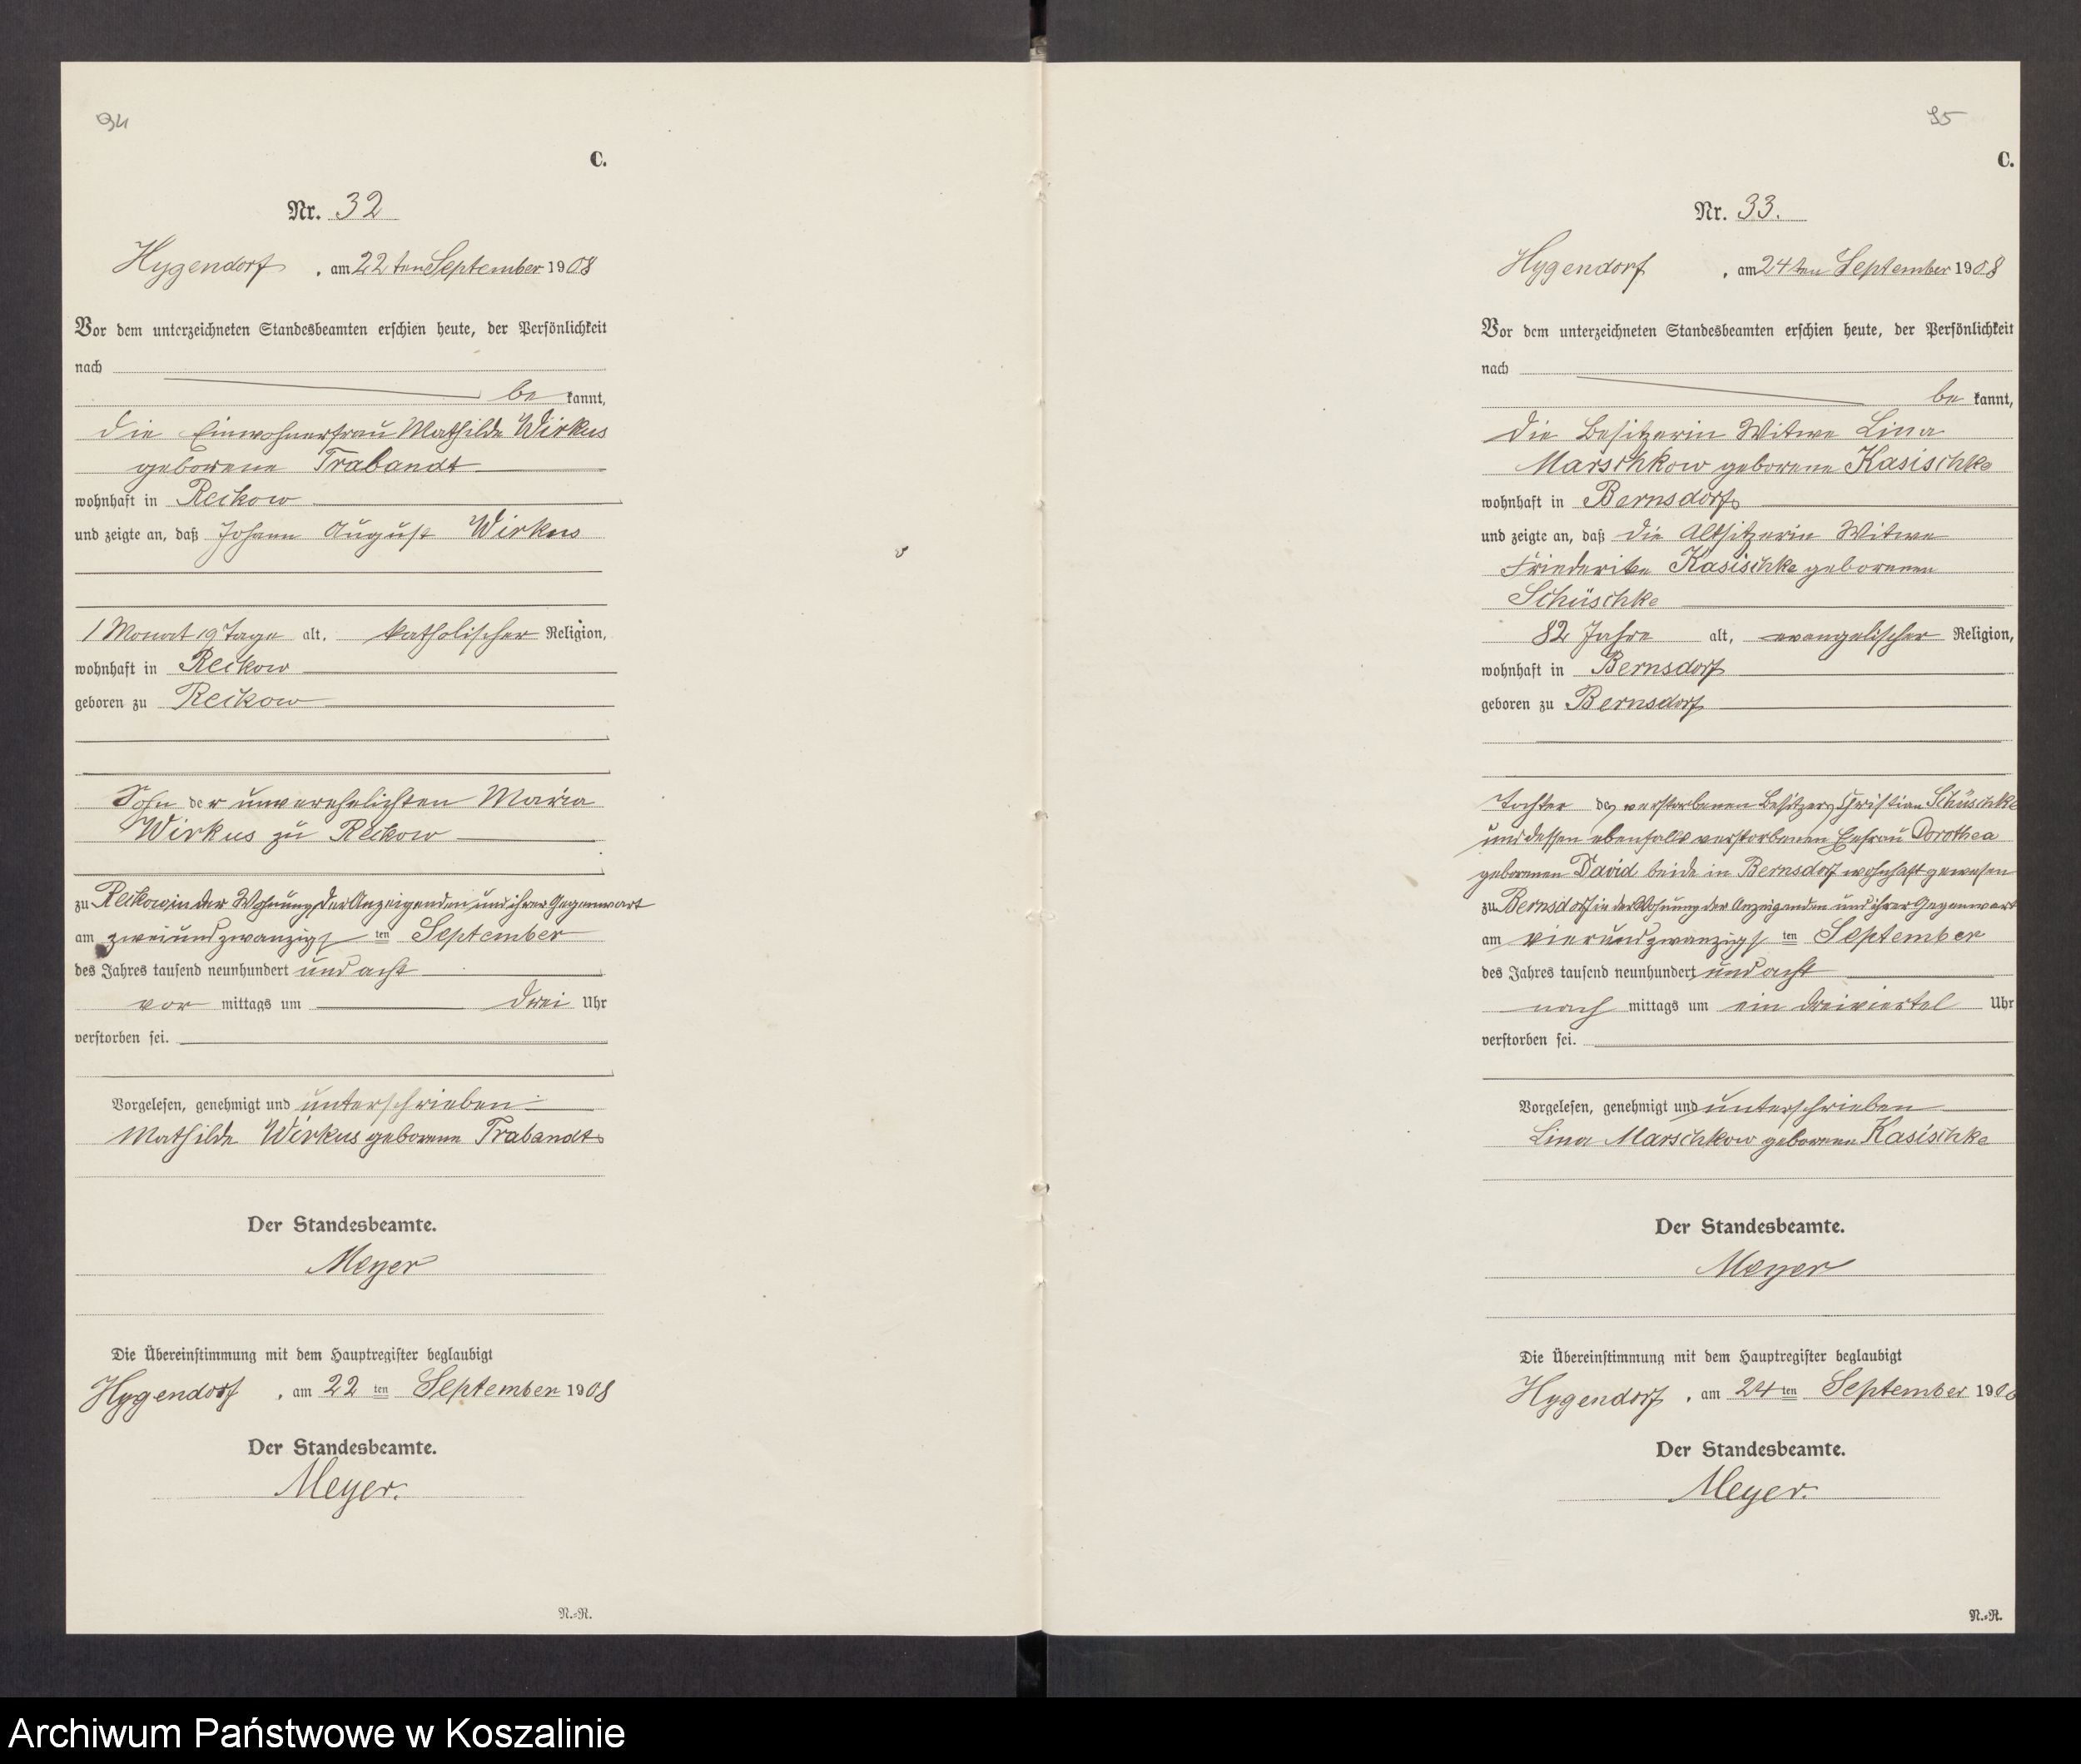 94
C.
Nr. 32
Hygendorf, am 22ten September 1908
Vor dem unterzeichneten Standesbeamten erschien heute, der Persönlichkeit
nach
bekannt,
die Einwohnerfrau Mathilde Wirkus
geborene Trabandt
wohnhaft in Reckow
und zeigte an, daß Johann August Wirkus
1 Monat 19 Tage alt, katholischer Religion,
wohnhaft in Reckow
geboren zu Reckow
Sohn der unverehelichten Maria
Wirkus zu Reckow
zu Reckow in der Wohnung der Anzeigenden und ihrer Gegenwart
am zweiundzwanzigsten September
des Jahres tausend neunhundert und acht
vormittags um drei Uhr
verstorben sei.
Vorgelesen, genehmigt und unterschrieben
Mathilde Wirkus geborene Trabandt
Der Standesbeamte.
Meyer
Die Übereinstimmung mit dem Hauptregister beglaubigt
Hygendorf, am 22ten September 1908
Der Standesbeamte.
Meyer.
N.-R.
95
C.
Nr. 33.
Hygendorf, am 24ten September 1908
Vor dem unterzeichneten Standesbeamten erschien heute, der Persönlichkeit
nach
bekannt,
die Besitzerin Witwe Lina
Marschkow geborene Kasischke
wohnhaft in Bernsdorf
und zeigte an, daß die Altsitzerin Witwe
Friederike Kasischke geborenen
Schüschke
82 Jahre alt, evangelischer Religion,
wohnhaft in Bernsdorf
geboren zu Bernsdorf
Tochter des verstorbenen Besitzers Christian Schüschke
und dessen ebenfalls verstorbenen Ehefrau Dorothea
geborenen David beide in Bernsdorf wohnhaft gewesen
zu Bernsdorf in der Wohnung der Anzeigenden und ihrer Gegenwart
am vierundzwanzigsten September
des Jahres tausend neunhundert und acht
nachmittags um ein dreiviertel Uhr
verstorben sei.
Vorgelesen, genehmigt und unterschrieben
Lina Marschkow geborene Kasischke
Der Standesbeamte.
Meyer
Die Übereinstimmung mit dem Hauptregister beglaubigt
Hygendorf, am 24ten September 1908
Der Standesbeamte.
Meyer.
N.-R.
Archiwum Państwowe w Koszalinie